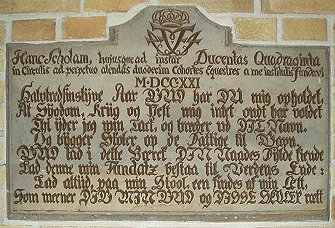 Hanc Scholam, hujusque ad instar Ducentas Quadraginta
in Circulis ad perpetuo alendas duodecim Cohortes Equestres a me institutis fundavi
MDCCXXI
Halvtredsinstiuve Aar GUD har DU mig opholdet.
At Sÿgdom, Krüg og Pest mig intet ondt har voldet
Thi yder jeg min Tack, og bruder ud DIT Navn.
Og bÿgger Skoler op de Fattige til Gavn.
GUD lad i dette Værck DIN Naades Fylde kiende
Lad denne min Fundatz bestaa til Verdens Ende:
Lad altiid paa min Stool een findes af min Æt,
Som mener DIG MIN GUD og DISSE SKOLER rett